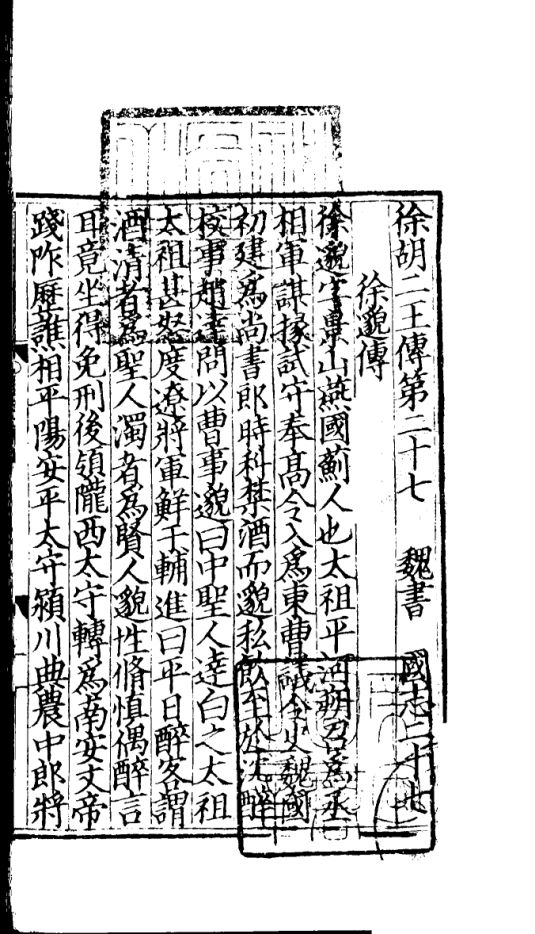 徐胡二王傳第二十七 魏書 國志二十七
徐邈傳
徐邈字景山燕國薊人也太祖平河朔召爲丞
相軍謀掾試守奉髙令入爲東曹議令史魏國
初建爲尚書郎時科禁酒而邈私飲至於沈醉
校事趙達問以曹事邈曰中聖人達白之太祖
太祖甚怒度遼將軍鮮于輔進曰平日醉客謂
酒清者爲聖人濁者爲賢人邈性脩慎偶醉言
耳竟坐得免刑後領隴西太守轉爲南安文帝
踐阼歷譙相平陽安平太守潁川典農中郎將